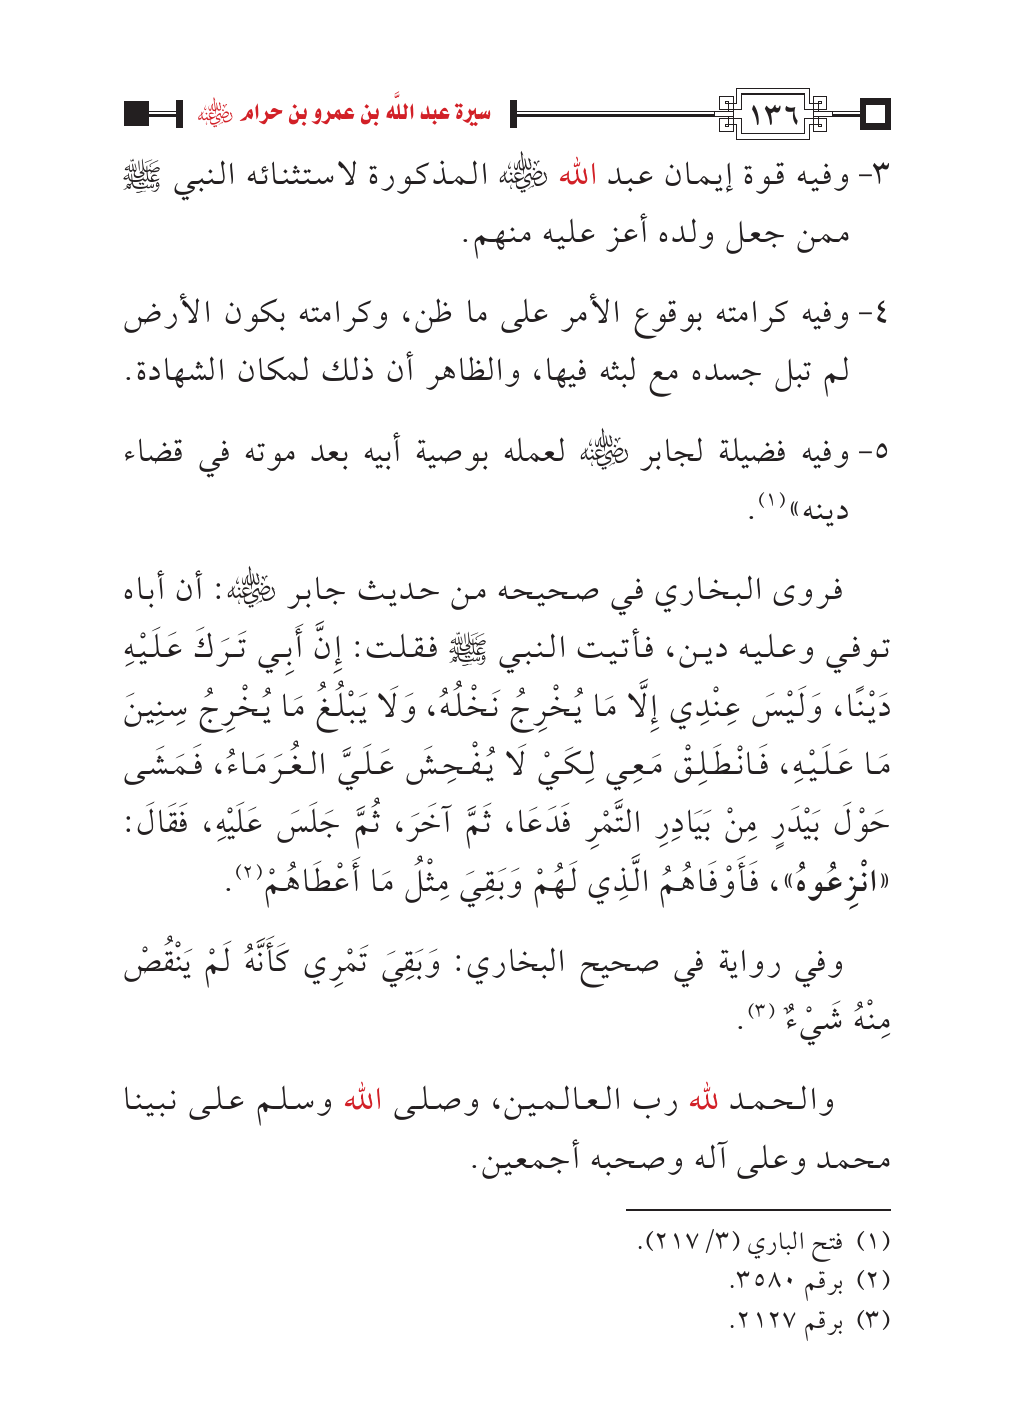 ١٣٦
سيرة عبد اللَّه بن عمرو بن حرام رضي الله عنه
٣- وفيه قوة إيمان عبد الله رضي الله عنه المذكورة لاستثنائه النبي ﷺ
ممن جعل ولده أعز عليه منهم.
٤- وفيه كرامته بوقوع الأمر على ما ظن، وكرامته بكون الأرض
لم تبل جسده مع لبثه فيها، والظاهر أن ذلك لمكان الشهادة.
٥- وفيه فضيلة لجابر رضي الله عنه لعمله بوصية أبيه بعد موته في قضاء
دينه»(١).
فروى البخاري في صحيحه من حديث جابر رضي الله عنه: أن أباه
توفي وعليه دين، فأتيت النبي ﷺ فقلت: إِنَّ أَبِي تَرَكَ عَلَيْهِ
دَيْنًا، وَلَيْسَ عِنْدِي إِلَّا مَا يُخْرِجُ نَخْلُهُ، وَلَا يَبْلُغُ مَا يُخْرِجُ سِنِينَ
مَا عَلَيْهِ، فَانْطَلِقْ مَعِي لِكَيْ لَا يُفْحِشَ عَلَيَّ الغُرَمَاءُ، فَمَشَى
حَوْلَ بَيْدَرٍ مِنْ بَيَادِرِ التَّمْرِ فَدَعَا، ثَمَّ آخَرَ، ثُمَّ جَلَسَ عَلَيْهِ، فَقَالَ:
«انْزِعُوهُ»، فَأَوْفَاهُمُ الَّذِي لَهُمْ وَبَقِيَ مِثْلُ مَا أَعْطَاهُمْ(٢).
وفي رواية في صحيح البخاري: وَبَقِيَ تَمْرِي كَأَنَّهُ لَمْ يَنْقُصْ
مِنْهُ شَيْءٌ (٣).
والحمد لله رب العالمين، وصلى الله وسلم على نبينا
محمد وعلى آله وصحبه أجمعين.
(١) فتح الباري (٣/ ٢١٧).
(٢) برقم ٣٥٨٠.
(٣) برقم ٢١٢٧.